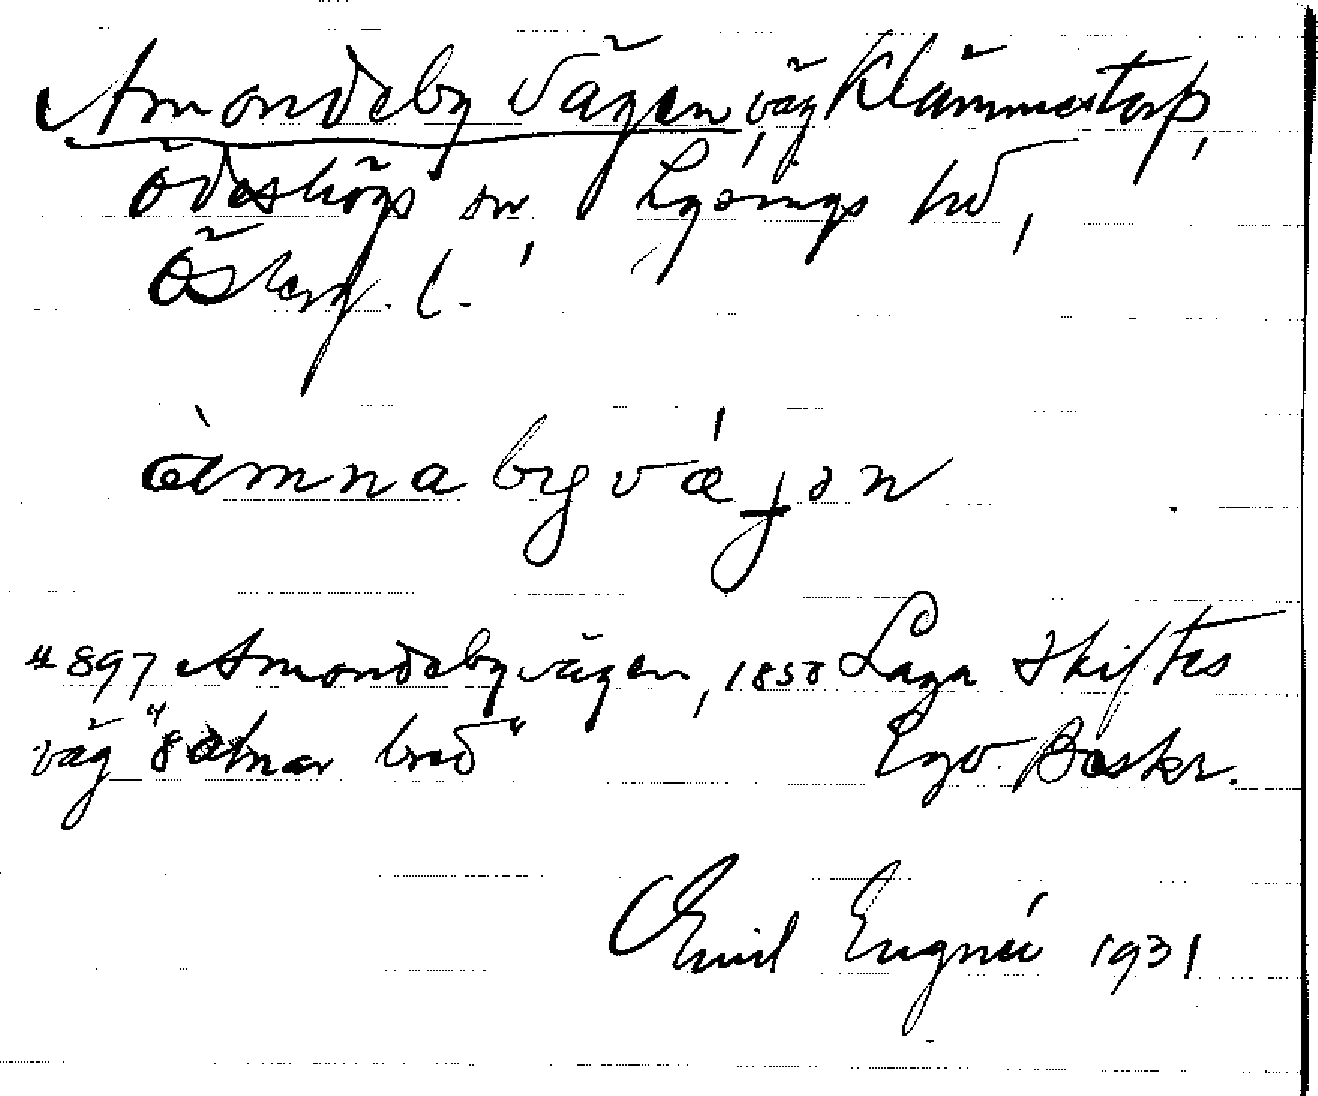 Amondeby Vägen, väg Klämmestorp,
Ödeshögs sn, Lysings hd,
Österg. l.
àmnabyvǽjən
"897 Amondebyvägen, 1858 Laga Skiftes
väg "8 alnar bred" Ego Beskr.
Emil Engnér 1931